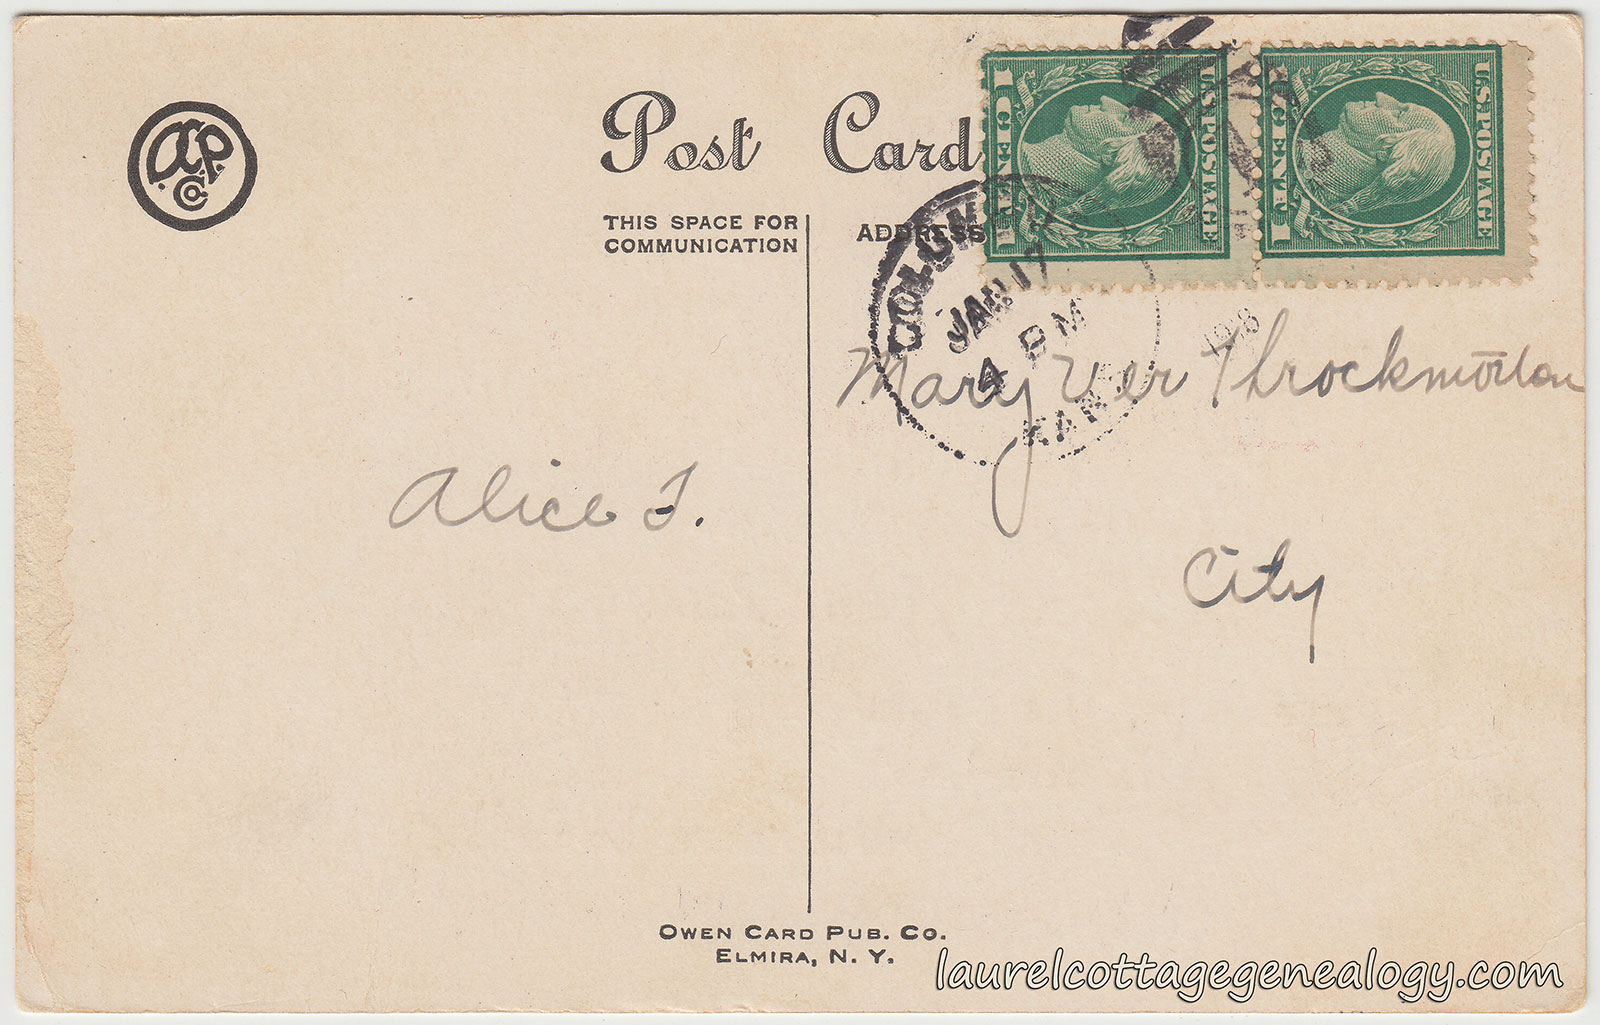 O.C.P. Co.
Post Card
THIS SPACE FOR
COMMUNICATION
ADDRESS
U.S. POSTAGE
1 CENT 1
U.S. POSTAGE
1 CENT 1
JAN 17
4 PM
KANS.
Mary Ver Throckmorton
City
Alice T.
OWEN CARD PUB. CO.
ELMIRA, N. Y.
laurelcottagegenealogy.com